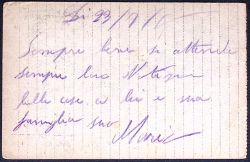 Li 23/7/1
Sempre bene si attende
sempre tuo
belle cose a lei e sua
famiglia suo
Mario